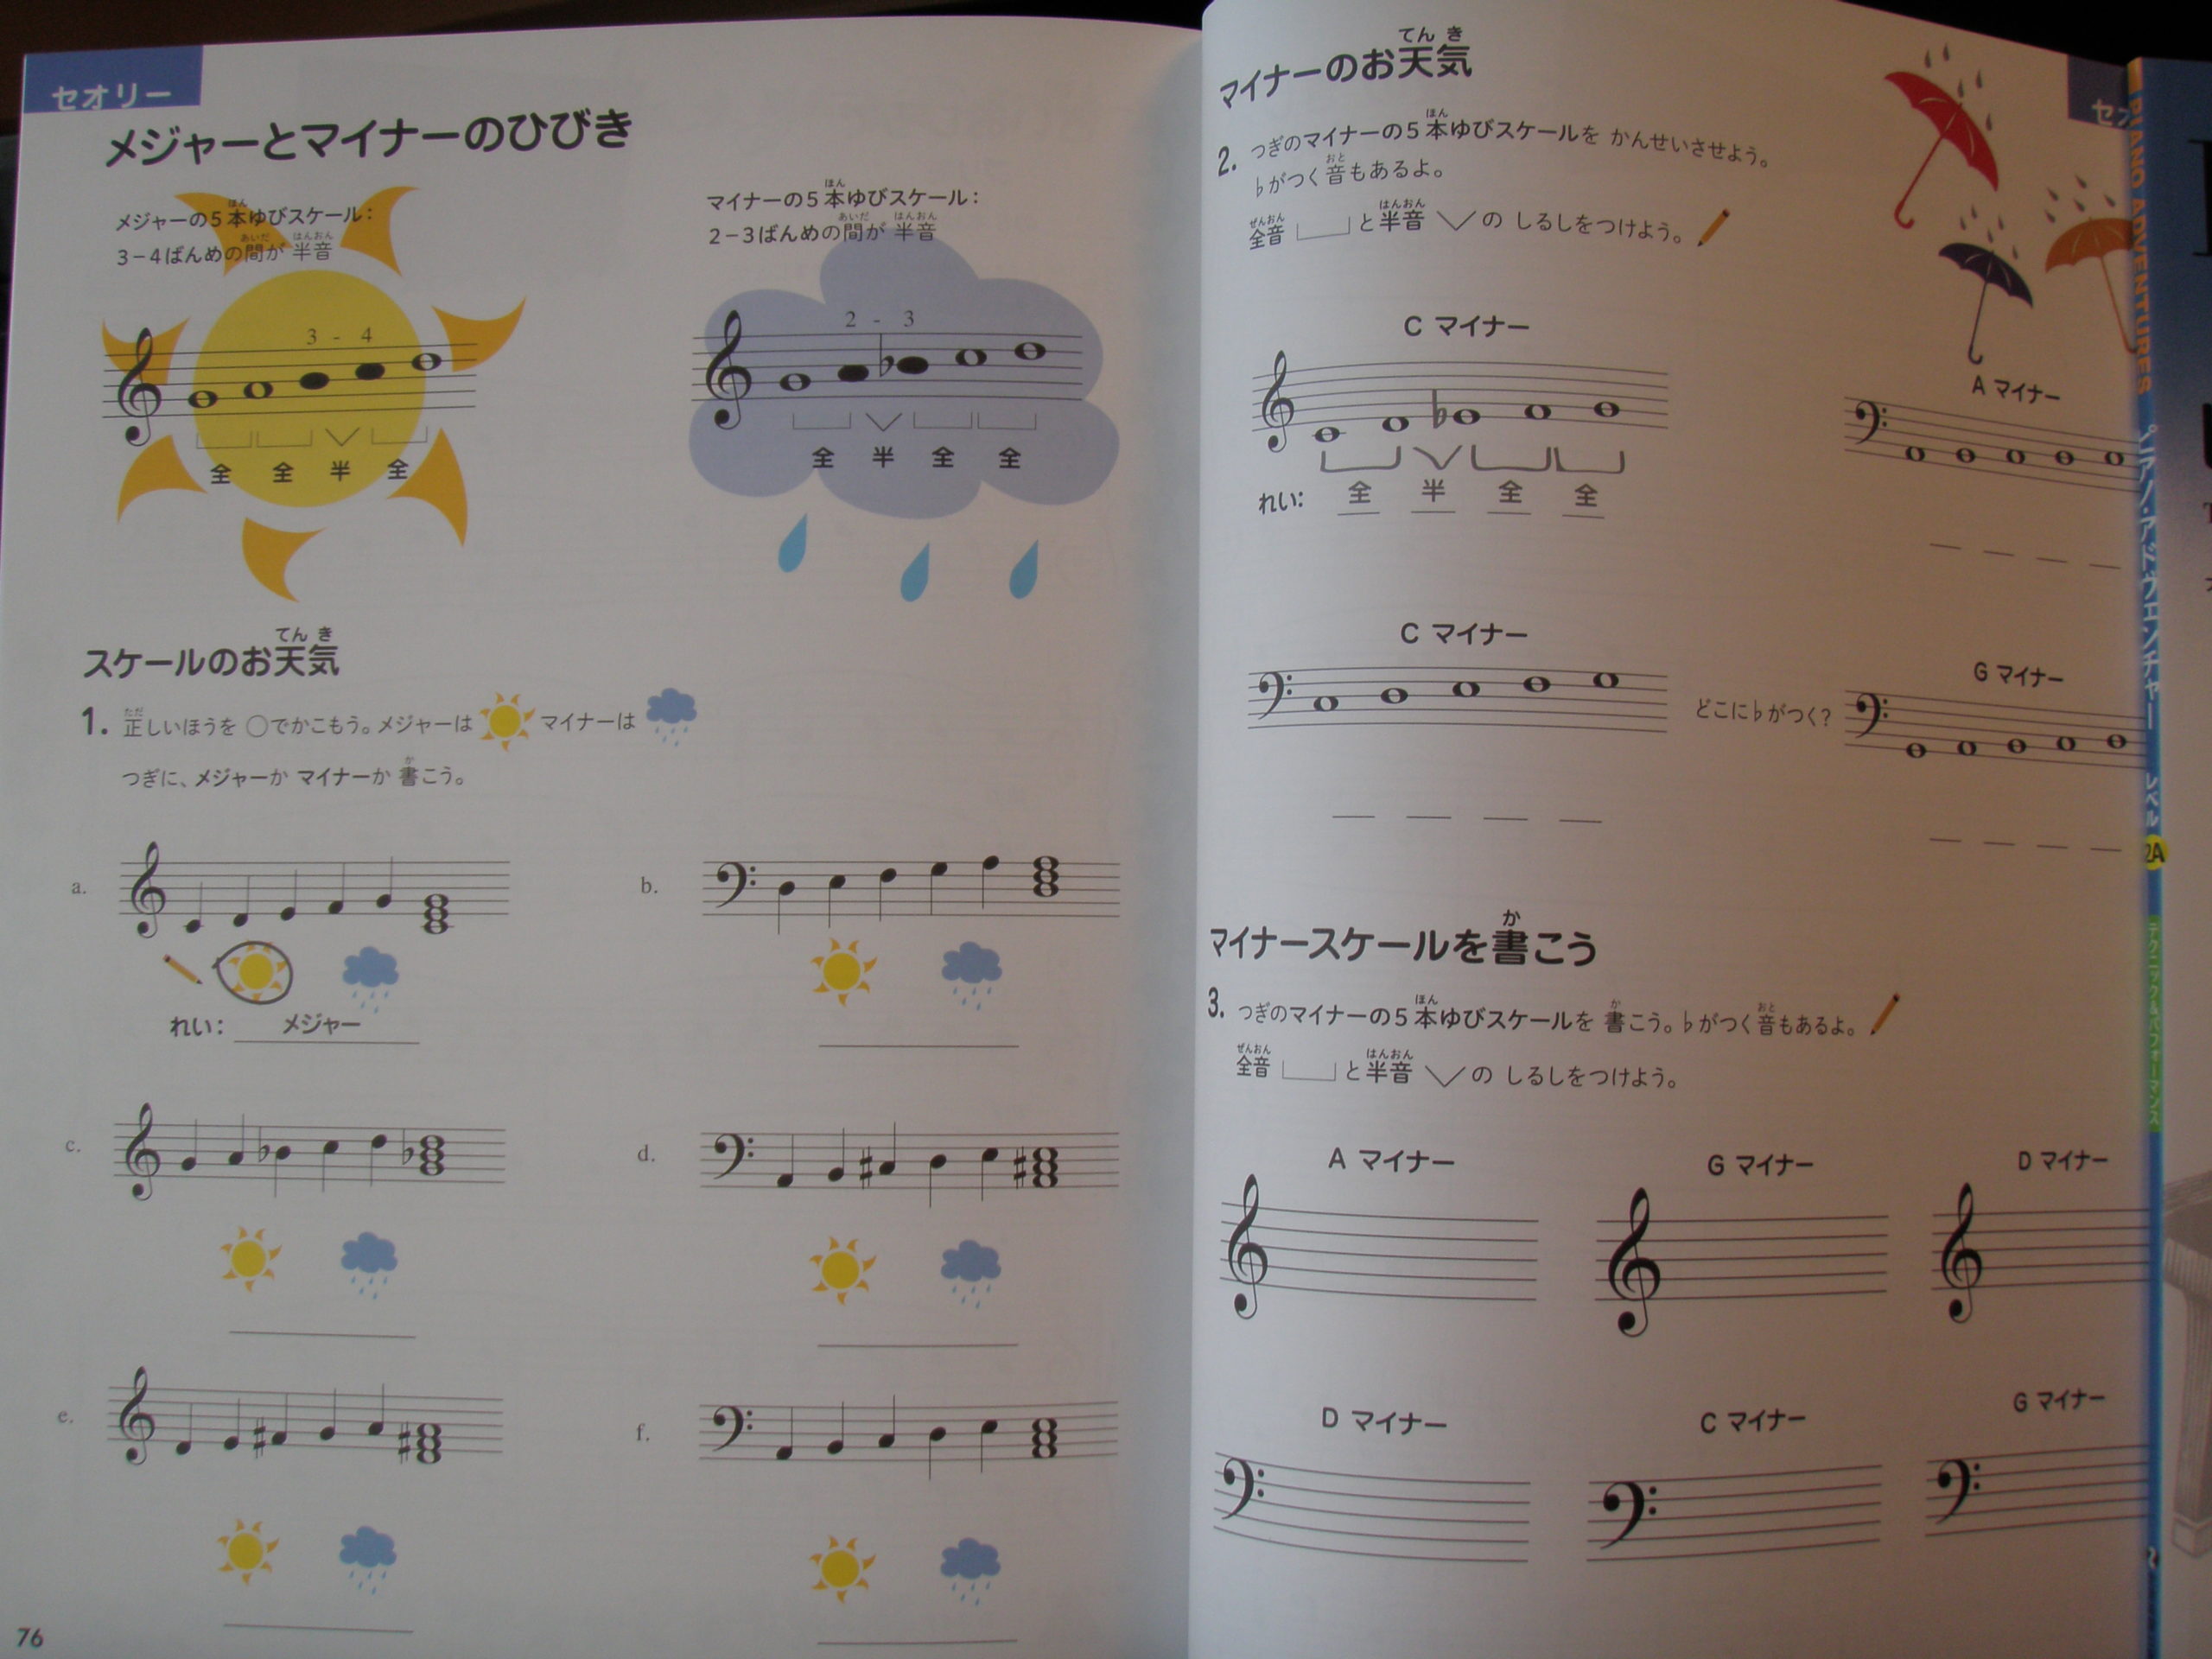 セオリー
メジャーとマイナーのひびき
メジャーの5本ゆびスケール：
ほん
3－4ばんめの間が 半音
あいだ はんおん
3 - 4
全 全 半 全
マイナーの5本ゆびスケール：
ほん
2－3ばんめの間が 半音
あいだ はんおん
2 - 3
全 半 全 全
てん き
スケールのお天気
1. 正しいほうを ○でかこもう。メジャーは マイナーは
ただ
つぎに、メジャーか マイナーか 書こう。
か
a.
れい： メジャー
b.
c.
d.
e.
f.
76
てん き
マイナーのお天気
2. つぎのマイナーの5本ゆびスケールを かんせいさせよう。
ほん
♭がつく音もあるよ。
おと
全音 と半音 の しるしをつけよう。
ぜんおん はんおん
C マイナー
れい： 全 半 全 全
A マイナー
C マイナー
どこに♭がつく？
G マイナー
か
マイナースケールを書こう
3. つぎのマイナーの5本ゆびスケールを 書こう。♭がつく音もあるよ。
ほん か おと
全音 と半音 の しるしをつけよう。
ぜんおん はんおん
A マイナー
G マイナー
D マイナー
D マイナー
C マイナー
G マイナー
PIANO ADVENTURES ピアノ・アドヴェンチャー レベル 2A
テクニック&パフォーマンス